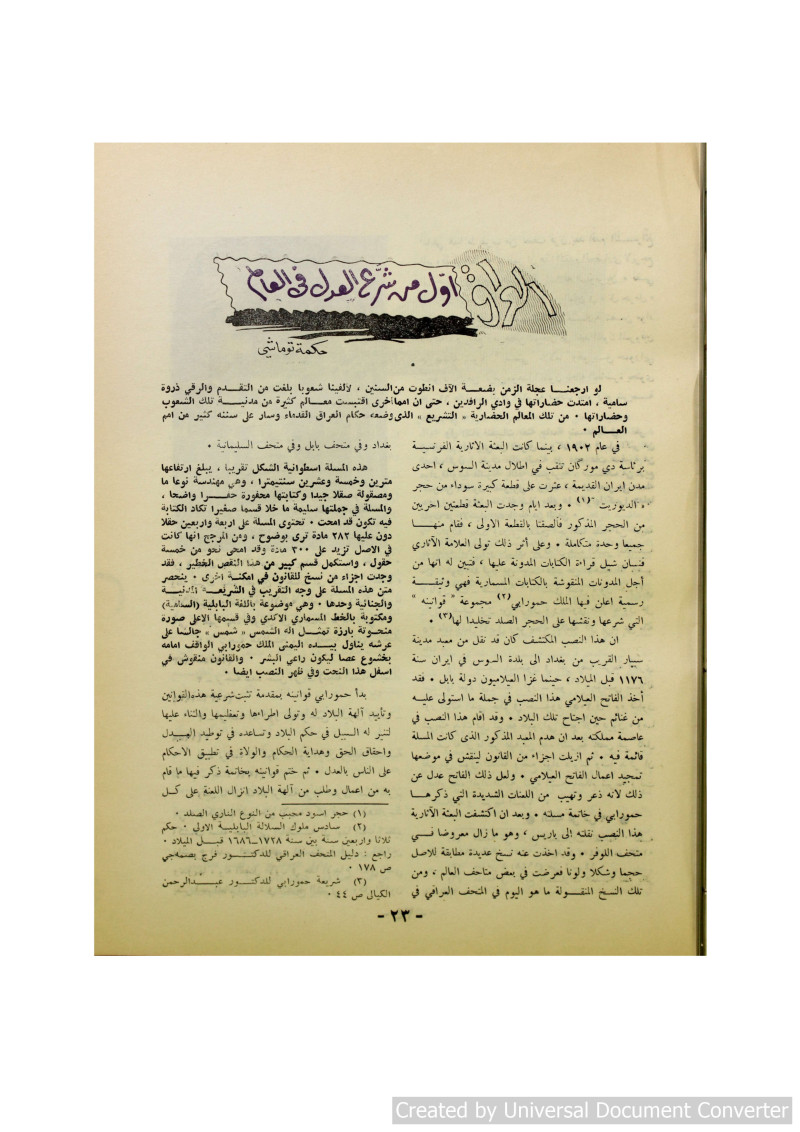 العراق
اول من شرّع العدل في العالم
حكمة توماشي
لو ارجعنـــا عجلة الزمن بضعـــة الآف انطوت من السنين ، لالفينا شعوبا بلغت من التقـــدم والرقي ذروة
سامية ، امتدت حضاراتها في وادي الرافدين ، حتى ان امما اخرى اقتبست معـــالم كثيرة من مدنيـــة تلك الشعوب
وحضاراتها ٠ من تلك المعالم الحضارية « التشريع » الذى وضعه حكام العراق القدماء وسار على سننه كثير من امم
العـــالم ٠
في عام ١٩٠٢ ، بينما كانت البعثة الآثارية الفرنسيـــة
برئاسة دي مورگان تنقب في اطلال مدينة السوس ، احدى
مدن ايران القديمة ، عثرت على قطعة كبيرة سوداء من حجر
« الديوريت »(١) ٠ وبعد ايام وجدت البعثة قطعتين اخريين
من الحجر المذكور فألصقتا بالقطعة الاولى ، فقام منهـــا
جميعا وحدة متكاملة ٠ وعلى أثر ذلك تولى العلامة الآثاري
فنسان شيل قراءة الكتابات المدونة عليها ، فتبين له انها من
أجل المدونات المنقوشة بالكتابات المسمارية فهي وثيقـــة
رسمية اعلن فيها الملك حمورابي(٢) مجموعة " قوانينه "
التي شرعها ونقشها على الحجر الصلد تخليدا لها(٣) ٠
ان هذا النصب المكتشف كان قد نقل من معبد مدينة
سيبار القريب من بغداد الى بلدة السوس في ايران سنة
١١٧٦ قبل الميلاد ، حينما غزا العيلاميون دولة بابل ٠ فقد
أخذ الفاتح العيلامي هذا النصب في جملة ما استولى عليـــه
من غنائم حين اجتاح تلك البلاد ٠ وقد اقام هذا النصب في
عاصمة مملكته بعد ان هدم المعبد المذكور الذى كانت المسلة
قائمة فيه ٠ ثم ازيلت اجزاء من القانون لينقش في موضعها
تمجيد اعمال الفاتح العيلامي ٠ ولعل ذلك الفاتح عدل عن
ذلك لانه ذعر وتهيب من اللعنات الشديدة التي ذكرهـــا
حمورابي في خاتمة مسلته ٠ وبعد ان اكتشفت البعثة الآثارية
هذا النصب نقلته الى باريس ، وهو ما زال معروضا فـــي
متحف اللوفر ٠ وقد اخذت عنه نسخ عديدة مطابقة للاصل
حجما وشكلا ولونا فعرضت في بعض متاحف العالم ، ومن
تلك النسخ المنقـــولة ما هو اليوم في المتحف العراقي في
بغداد وفي متحف بابل وفي متحف السليمانية ٠
هذه المسلة اسطوانية الشكل تقريبا ، يبلغ ارتفاعها
مترين وخمسة وعشرين سنتيمترا ، وهي مهندسة نوعا ما
ومصقولة صقلا جيدا وكتابتها محفورة حفـــرا واضحا ،
والمسلة في جملتها سليمة ما خلا قسما صغيرا تكاد الكتابة
فيه تكون قد امحت ٠ تحتوى المسلة على اربعة واربعين حقلا
دون عليها ٢٨٢ مادة ترى بوضوح ، ومن المرجح انها كانت
في الاصل تزيد على ٣٠٠ مادة وقد امحى نحو من خمسة
حقول ، واستكمل قسم كبير من هذا النقص الخطير ، فقد
وجدت اجزاء من نسخ للقانون في امكنـــة اخرى ٠ ينحصر
متن هذه المسلة على وجه التقريب في الشريعـــة المدنيـــة
والجنائية وحدها ٠ وهي موضوعة باللغة البابلية (السامية)
ومكتوبة بالخط المسماري الاكدي وفي قسمها الاعلى صورة
منحوتة بارزة تمثـــل اله الشمس « شمس » جالسا على
عرشه يناول بيـــده اليمنى الملك حمورابي الواقف امامه
بخشوع عصا ليكون راعي البشر ٠ والقانون منقوش في
اسفل هذا النحت وفي ظهر النصب ايضا ٠
بدأ حمورابي قوانينه بمقدمة تثبت شرعية هذه القوانين
وتأييد آلهة البلاد له وتولى اطراءها وتعظيمها والثناء عليها
لتنير له السبيل في حكم البلاد وتساعده في توطيد العـــدل
واحقاق الحق وهداية الحكام والولاة في تطبيق الاحكام
على الناس بالعدل ٠ ثم ختم قوانينه بخاتمة ذكر فيها ما قام
به من اعمال وطلب من آلهة البلاد انزال اللعنة على كـــل
(١) حجر اسود محبب من النوع الناري الصلد ٠
(٢) سادس ملوك السلالة البابليـــة الاولى ٠ حكم
ثلاثا واربعين سنة بين سنة ١٧٢٨-١٦٨٦ قبـــل الميلاد ٠
راجع : دليل المتحف العراقي للدكتـــور فرج بصمه‌جي
ص ١٧٨ ٠
(٣) شريعة حمورابي للدكتـــور عبـــدالرحمن
الكيالى ص ٤٤ ٠
- ٢٣ -
Created by Universal Document Converter